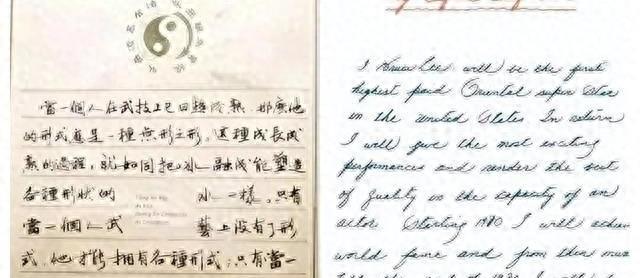 當一個人在武技上已日趨成熟 那麼他
的形式應是一種無形之形。這種成長成
熟的過程,就如同把冰融成能塑造
各種形狀的 水一樣。只有
當一個人武 藝上沒有了形
式,他才能擁有各種形式;只有當一
As Way
Having No Limitation
As Limitation
I Bruce Lee, will be the first
highest paid Oriental super star
in the united States In return
I will give the most exciting
performances and render the best
of quality in the capacity of an
actor Starting 1970 I will
world fame and from then